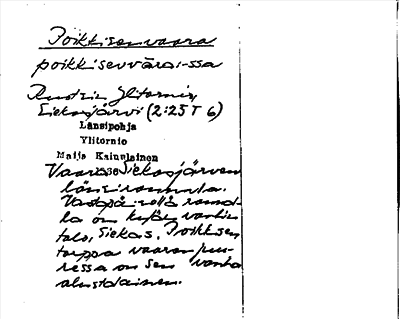 Poikkisenvaara
poikkisevvāra: -ssa
Ruotsin Ylitornio,
Siekasjärvi (2:25 T 6)
Länsipohja
Ylitornio
Maija Kainulainen
Vaara Siekasjärven
länsirannalla.
Vastapäisellä rannal-
la on kylän vanhin
talo, Siekas. Poikkisen
torppa vaaran juu-
ressa on sen vanha
alustalainen.